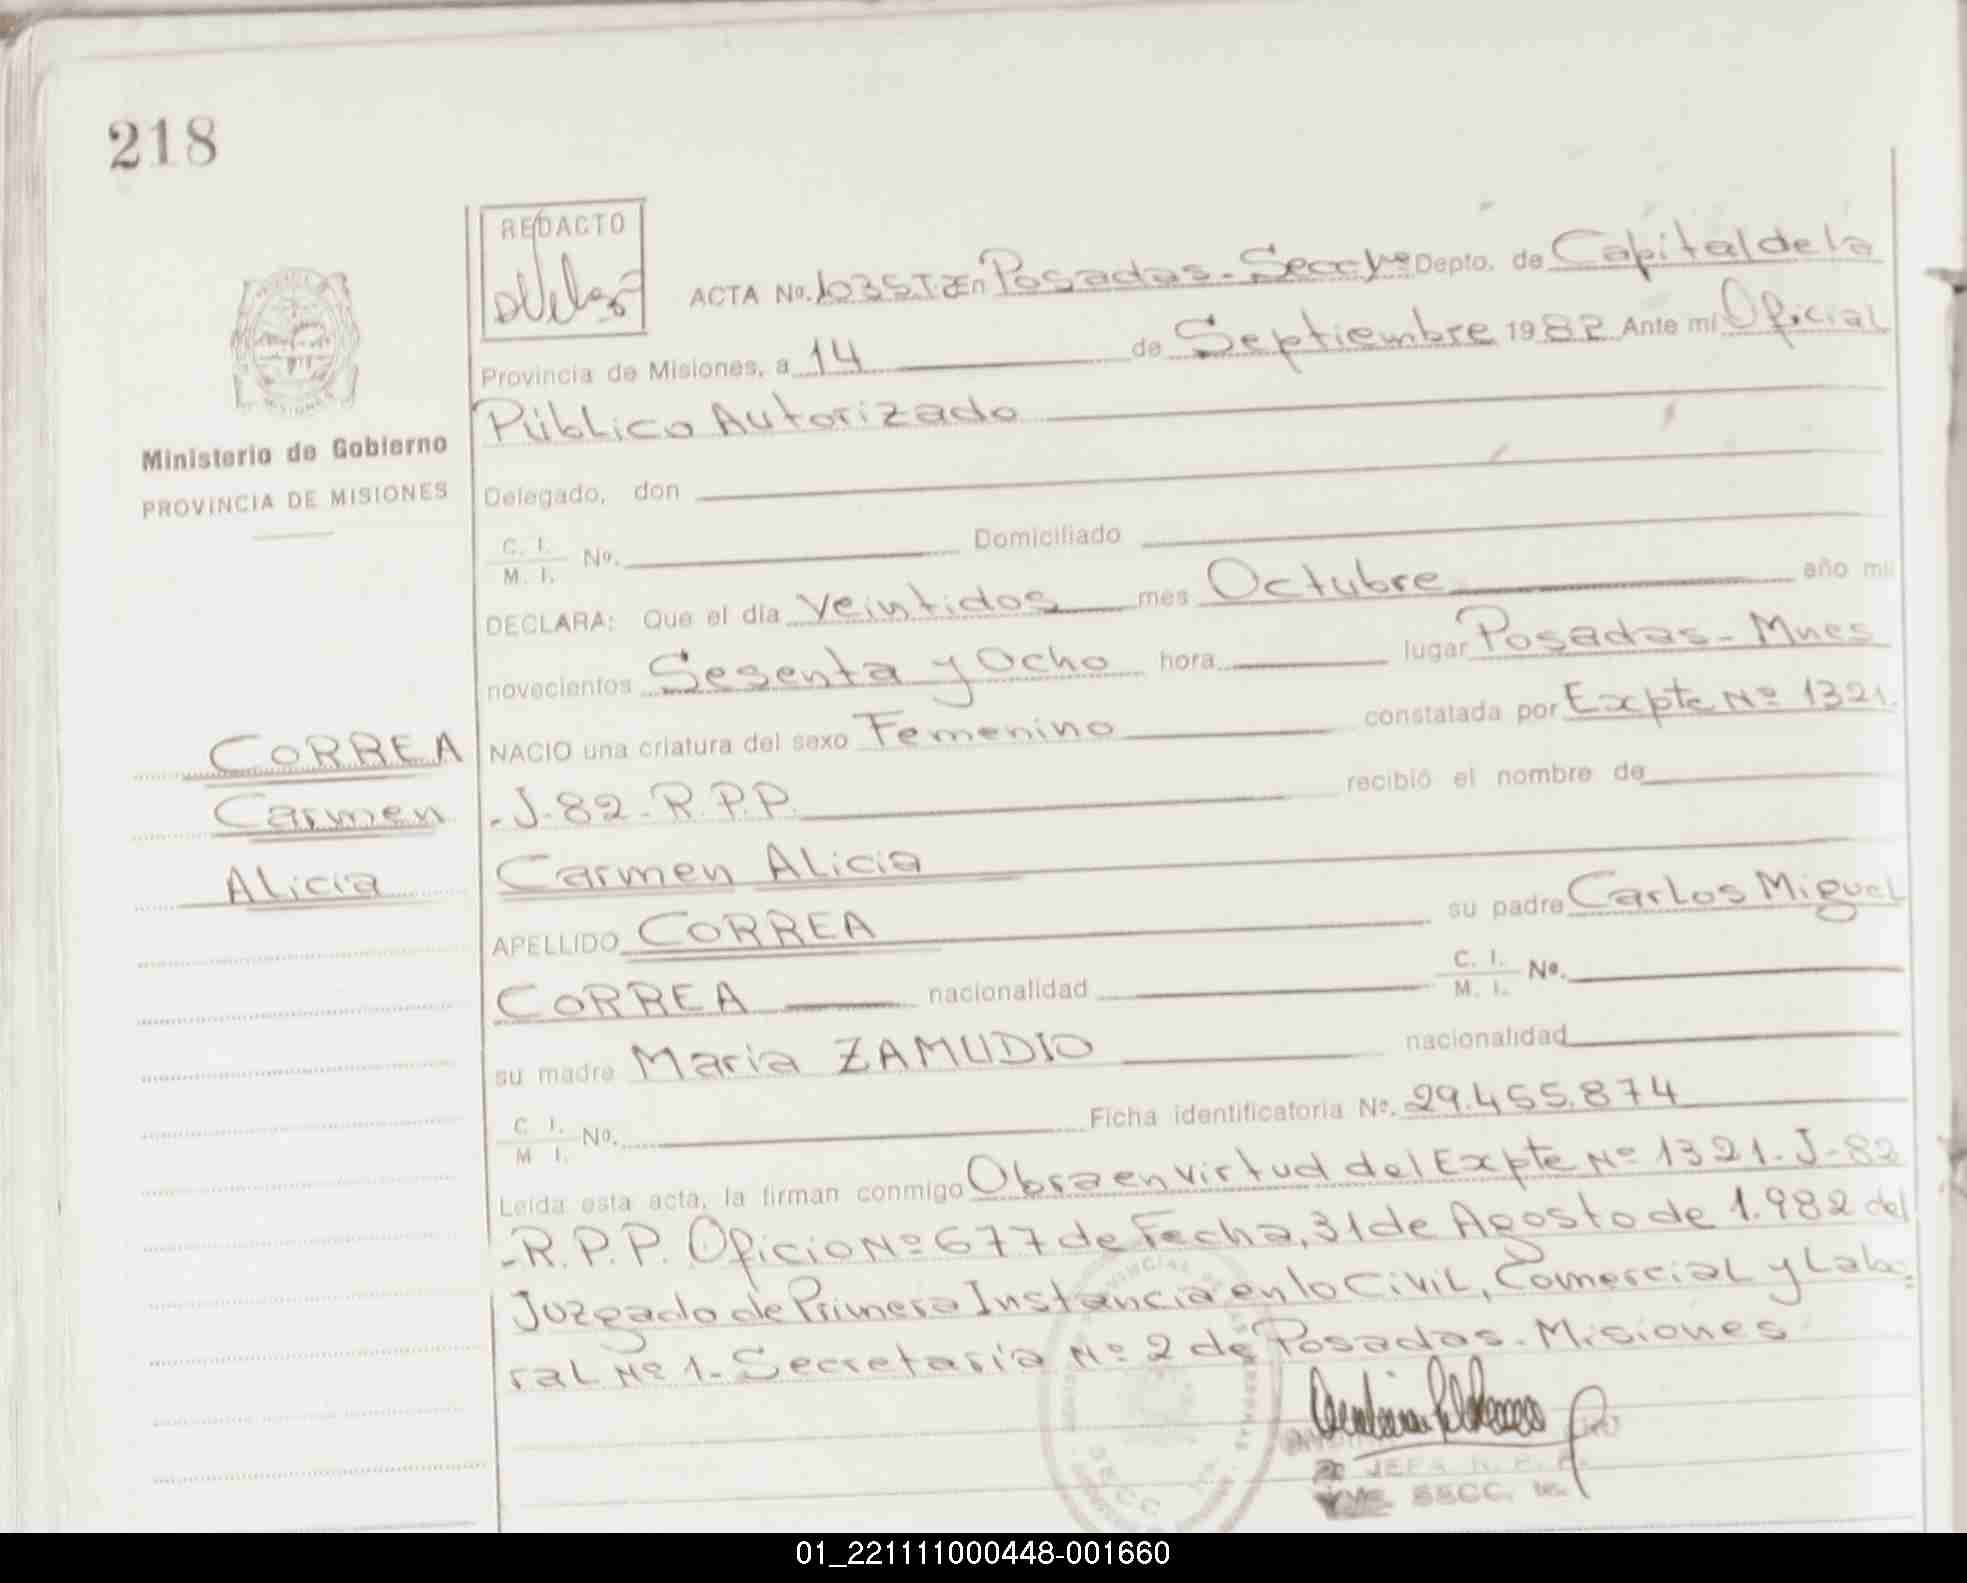 218
REDACTO
ACTA No. 1035 T.I En Posadas - Secc 1ra Depto. de Capital de la
Provincia de Misiones, a 14 de Septiembre 1982 Ante mí Oficial
Público Autorizado
Ministerio de Gobierno
PROVINCIA DE MISIONES
Delegado, don
C. I. / M. I. No. Domiciliado
DECLARA: Que el día Veintidos mes Octubre año mil
novecientos Sesenta y Ocho hora lugar Posadas - Mnes
CORREA
Carmen
Alicia
NACIO una criatura del sexo Femenino constatada por Expte Nº 1321.
-J-82-R.P.P. recibió el nombre de
Carmen Alicia
APELLIDO CORREA su padre Carlos Miguel
CORREA nacionalidad C. I. / M. I. No.
su madre Maria ZAMUDIO nacionalidad
C. I. / M. I. No. Ficha identificatoria No. 29.455.874
Leída esta acta, la firman conmigo Obra en virtud del Expte Nº 1321-J-82
-R.P.P. Oficio Nº 677 de Fecha, 31 de Agosto de 1.982 del
Juzgado de Primera Instancia en lo Civil, Comercial y Labo-
ral Nº 1 - Secretaria Nº 2 de Posadas - Misiones
JEFA R. P. P.
SECC.
SECC.
01_221111000448-001660